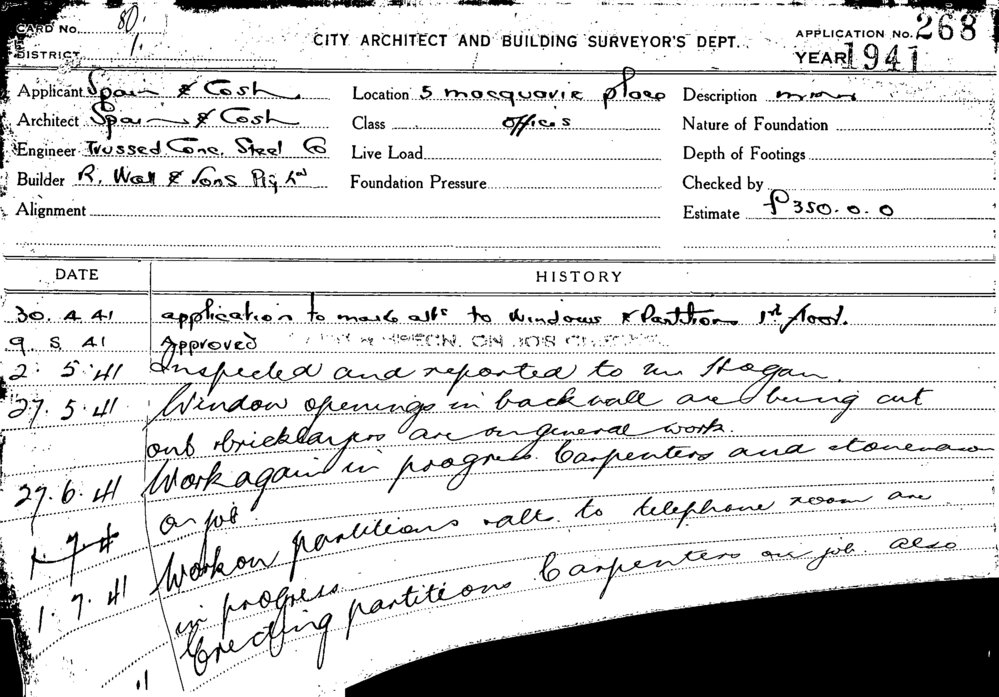 CARD No. 80.
DISTRICT 1.
CITY ARCHITECT AND BUILDING SURVEYOR'S DEPT.
APPLICATION No. 268
YEAR 1941
Applicant Spain & Cosh
Architect Spain & Cosh
Engineer Trussed Conc. Steel Co
Builder R. Wall & Sons Pty Ltd
Alignment
Location 5 macquarie place
Class offices
Live Load
Foundation Pressure
Description minor
Nature of Foundation
Depth of Footings
Checked by
Estimate £350.0.0
DATE HISTORY
30.4.41 application to make alts to windows & Partition 1st floor.
9.5.41 Approved
2.5.41 Inspected and reported to Mr Hogan
27.5.41 Window openings in back wall are being cut
out bricklayers are on general work.
27.6.41 Work again in progress. Carpenters and stonemason
on job.
1.7.41 Work on partitions alts. to telephone room are
in progress.
" Erecting partitions Carpenters on job. also